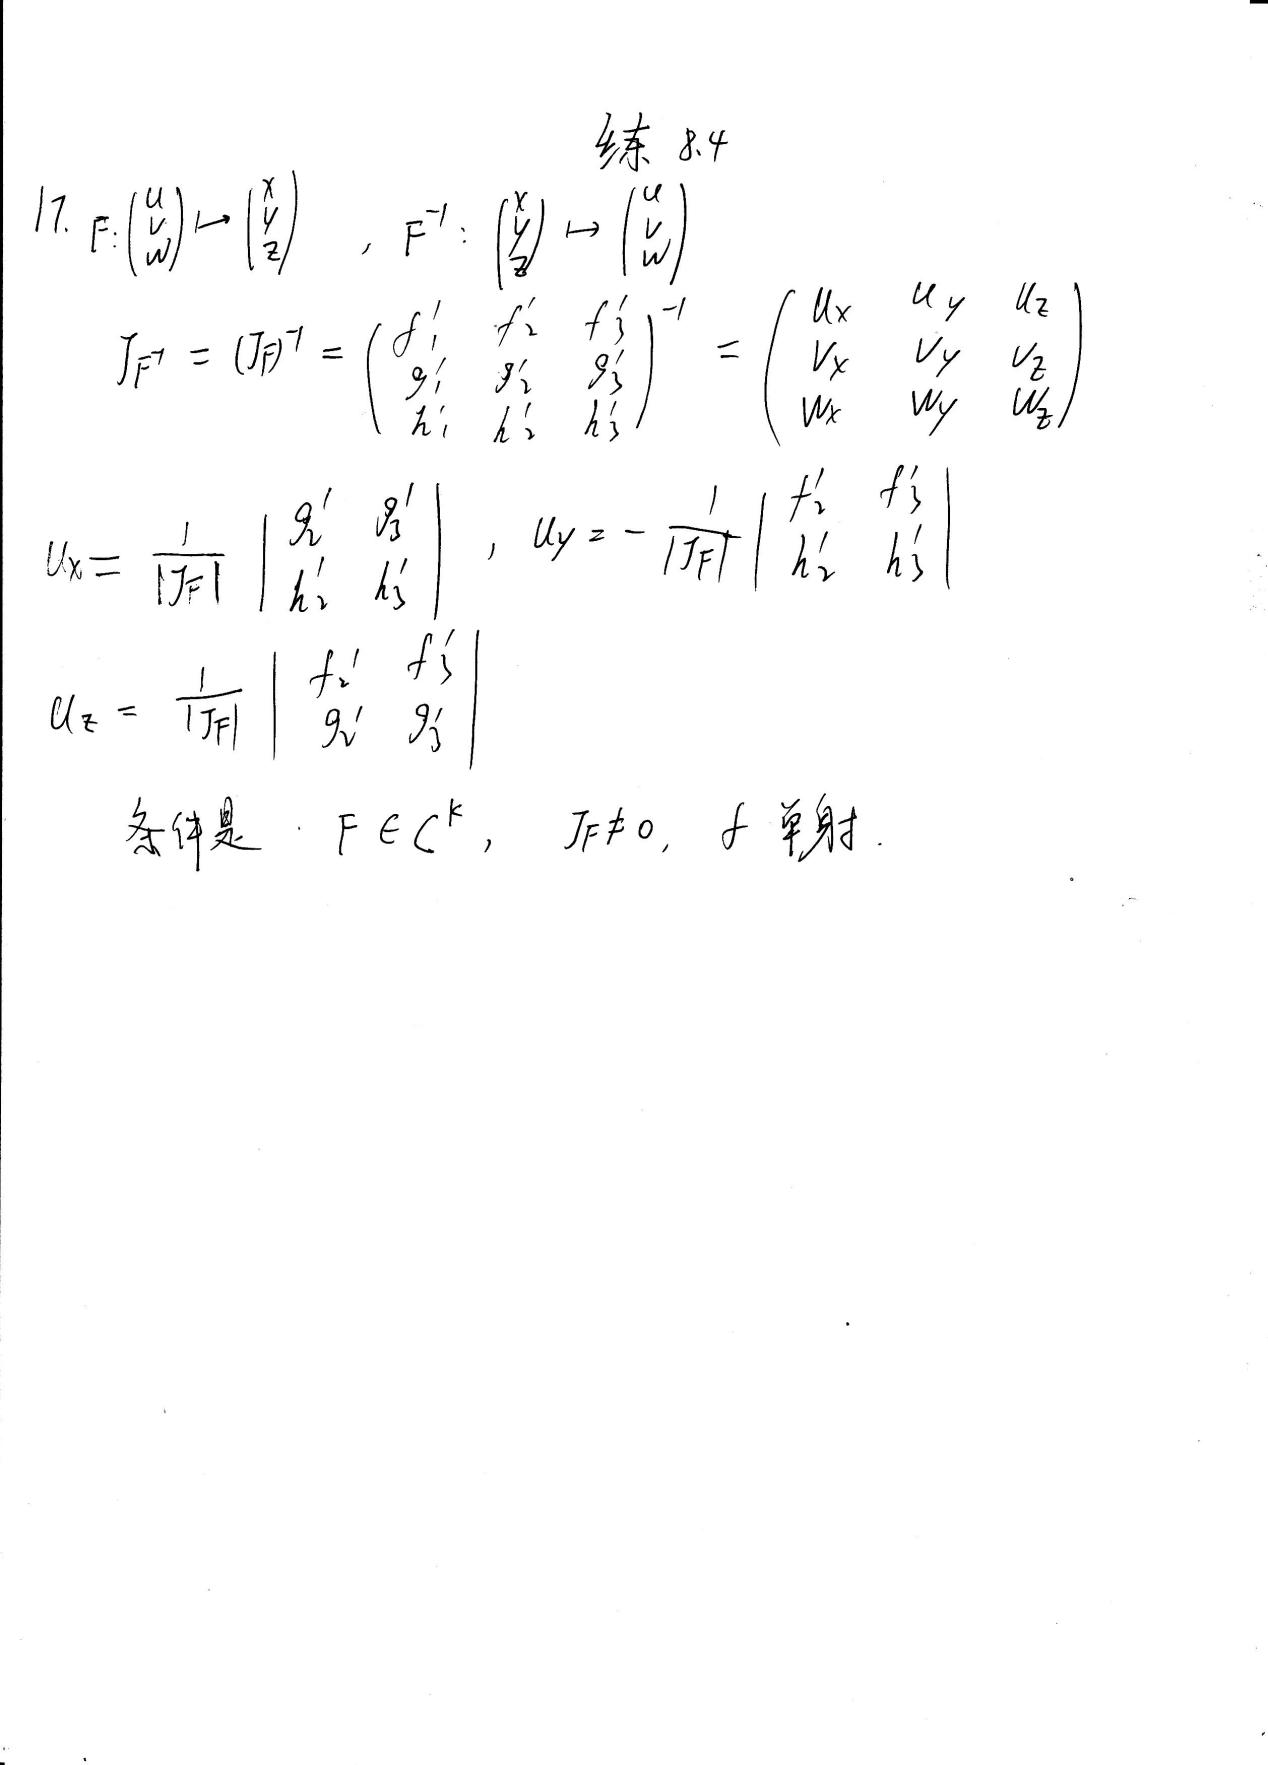 练 8.4
17. F: (u v w) ↦ (x y z) , F⁻¹: (x y z) ↦ (u v w)
J_F⁻¹ = (J_F)⁻¹ = (f'₁ f'₂ f'₃ g'₁ g'₂ g'₃ h'₁ h'₂ h'₃)⁻¹ = (u_x u_y u_z v_x v_y v_z w_x w_y w_z)
u_x = 1/|J_F| | g'₂ g'₃ h'₂ h'₃ | , u_y = - 1/|J_F| | f'₂ f'₃ h'₂ h'₃ |
u_z = 1/|J_F| | f'₂ f'₃ g'₂ g'₃ |
条件是 F ∈ Cᵏ, J_F ≠ 0, f 单射.